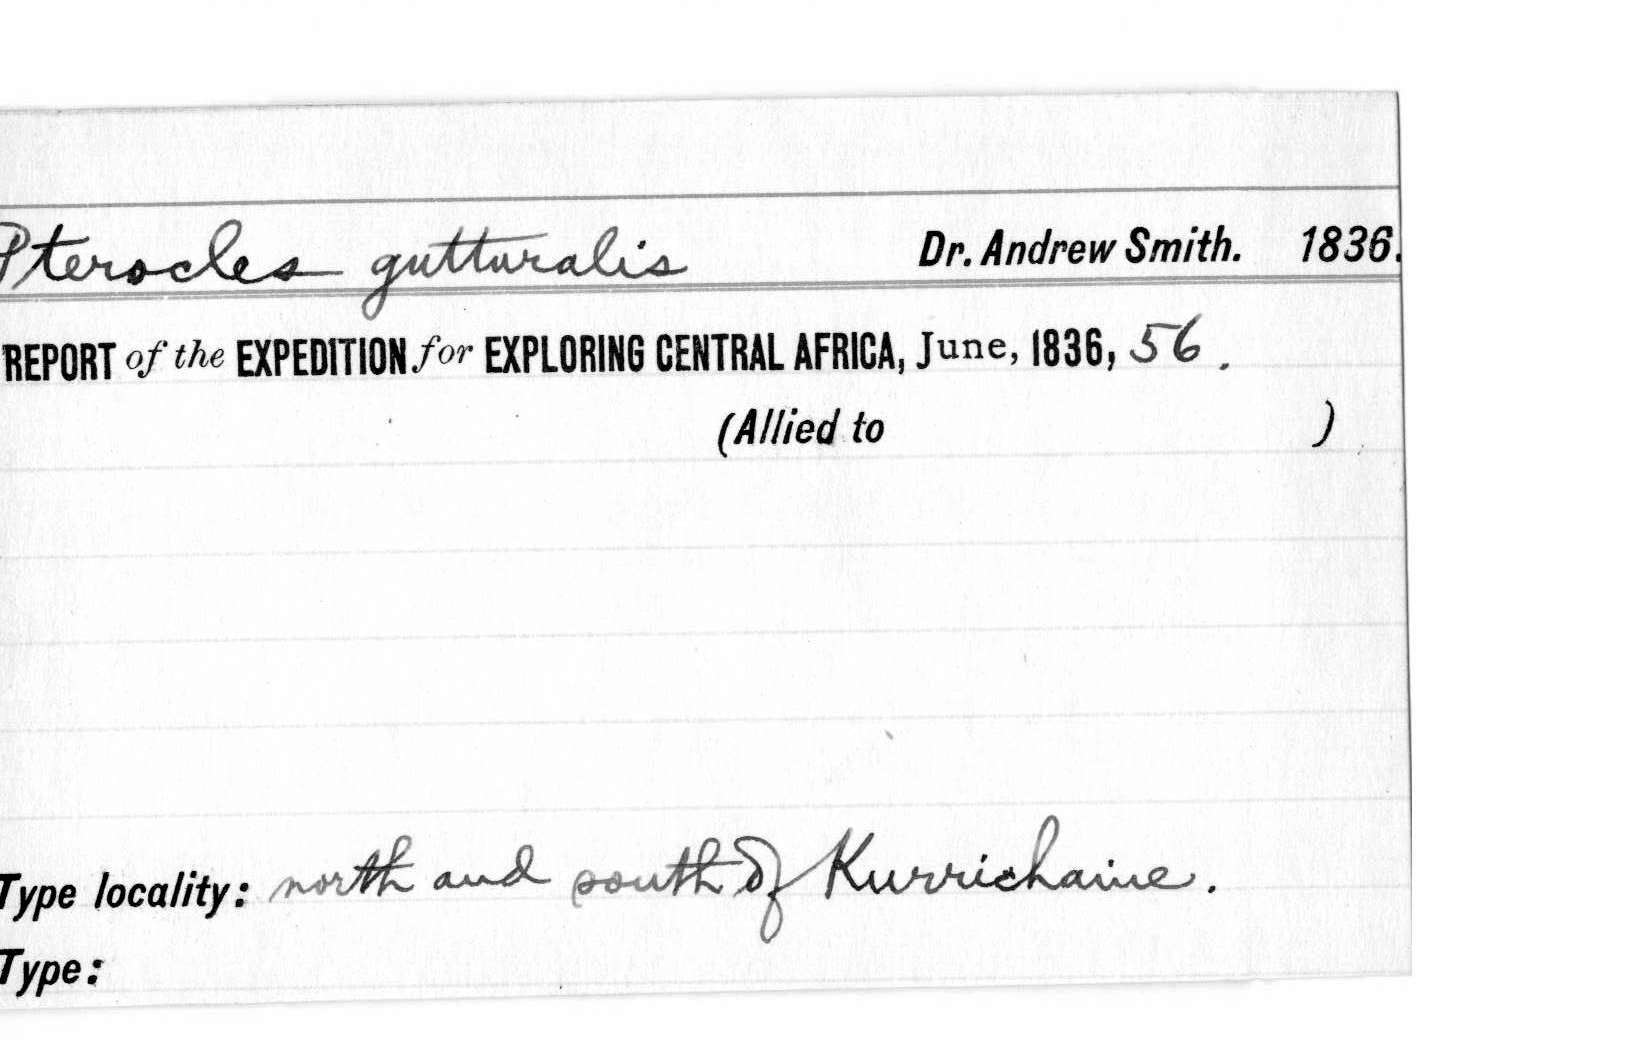 Pterocles gutturalis Dr. Andrew Smith. 1836.
REPORT of the EXPEDITION for EXPLORING CENTRAL AFRICA, June, 1836, 56.
(Allied to )
Type locality: north and south of Kurrichaine.
Type: